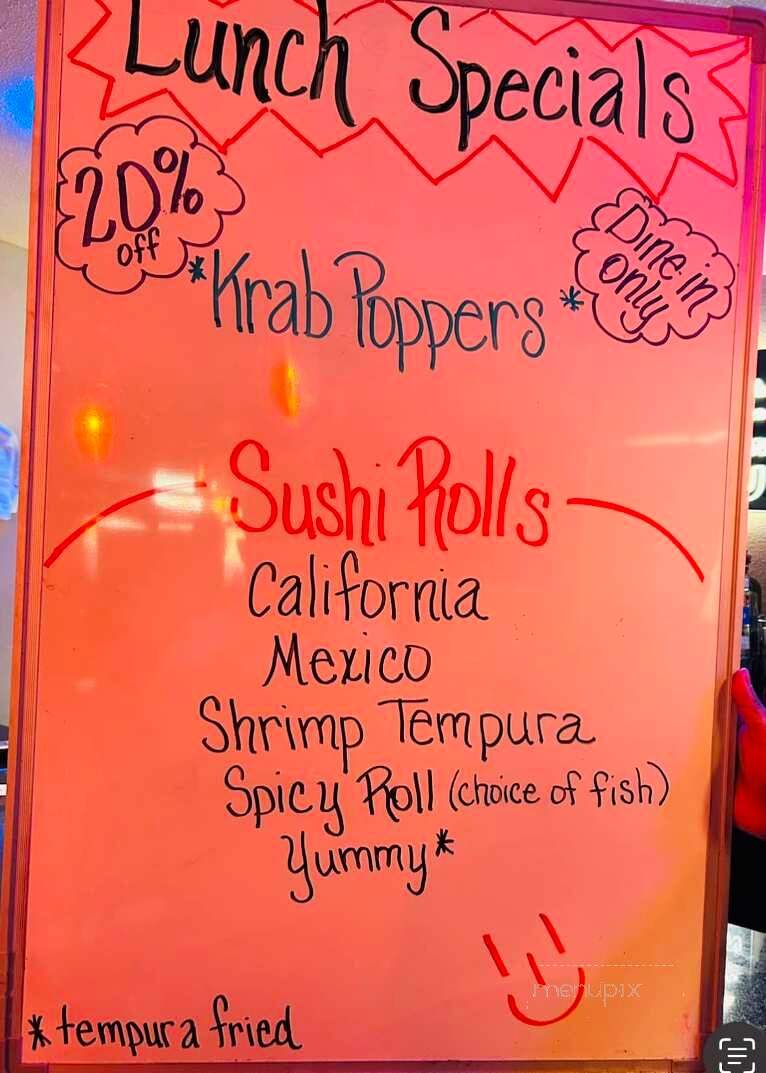 Lunch Specials
20%
off
Dine in
only
*Krab Poppers*
Sushi Rolls
California
Mexico
Shrimp Tempura
Spicy Roll (choice of fish)
Yummy*
menupix
*tempura fried